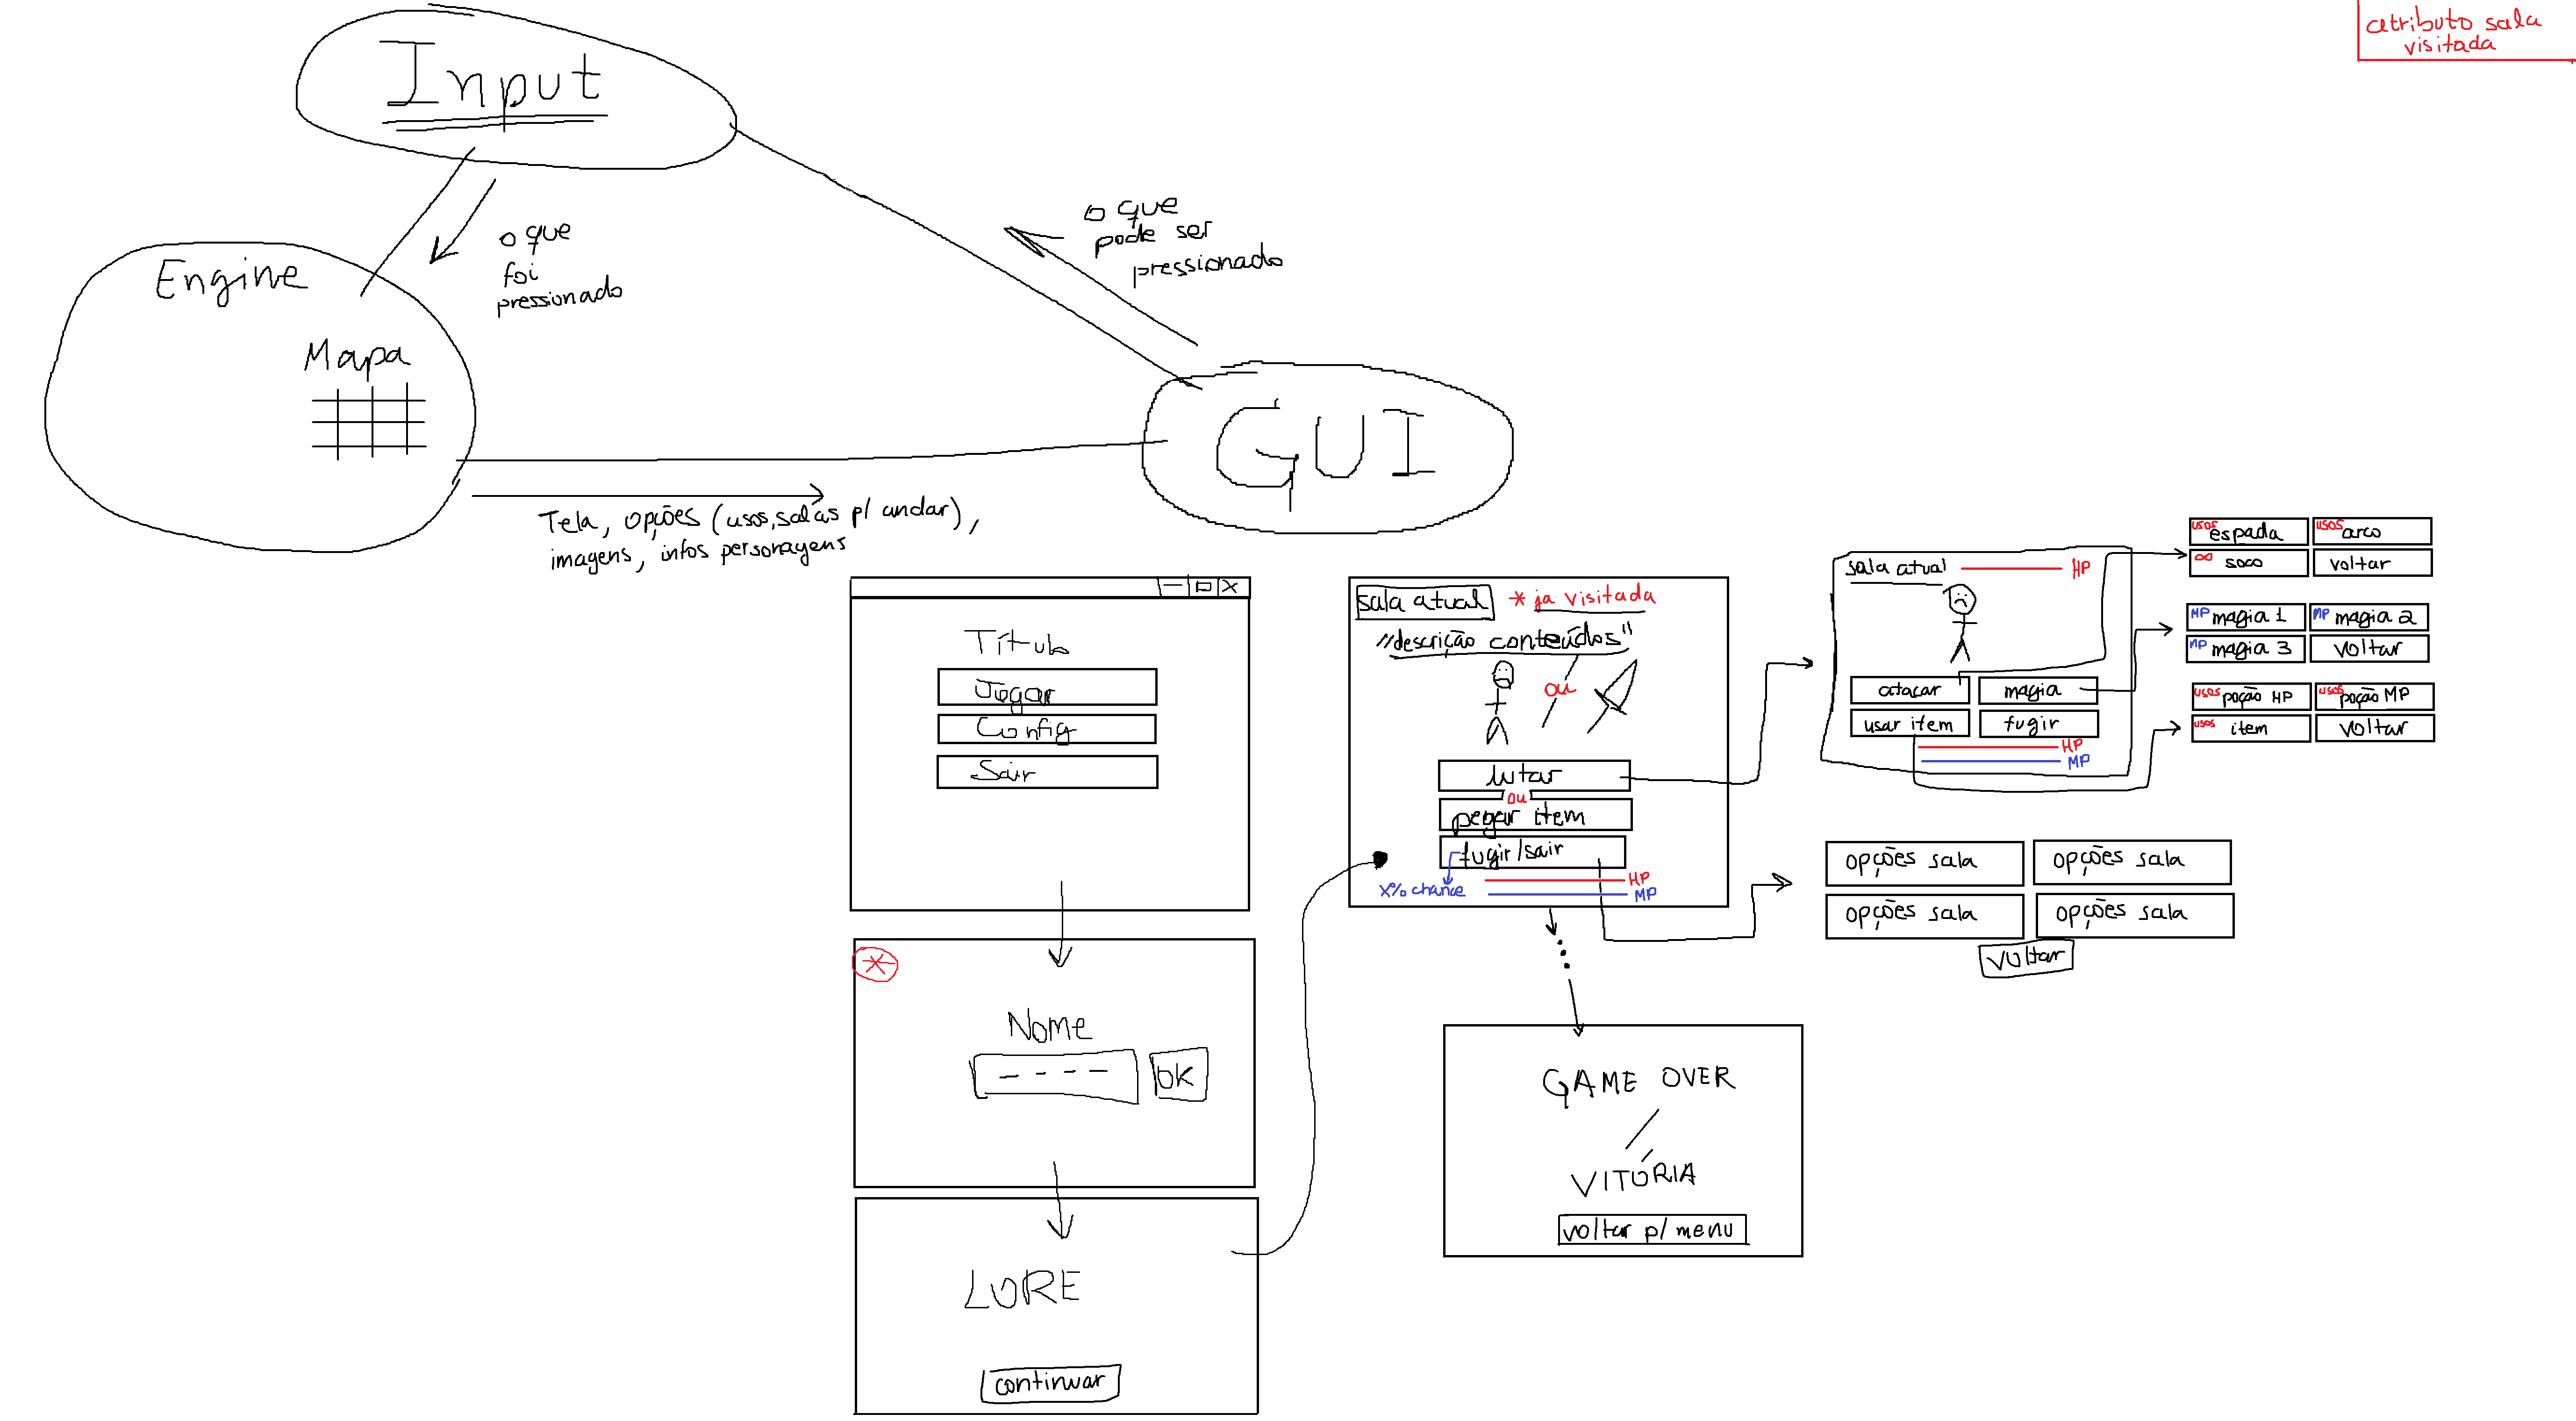 atributo sala
visitada
Input
o que
foi
pressionado
o que
pode ser
pressionado
Engine
Mapa
GUI
Tela, opções (usos, salas p/ andar),
imagens, infos personagens
Título
Jogar
Config
Sair
*
Nome
- - - -
OK
LORE
continuar
sala atual * ja visitada
"descrição conteúdos"
ou
lutar
ou
pegar item
fugir/sair
x% chance
HP
MP
sala atual HP
atacar magia
usar item fugir
HP
MP
usos espada usos arco
∞ soco voltar
MP magia 1 MP magia 2
MP magia 3 voltar
usos poção HP usos poção MP
usos item voltar
opções sala opções sala
opções sala opções sala
voltar
GAME OVER
/
VITÓRIA
voltar p/ menu